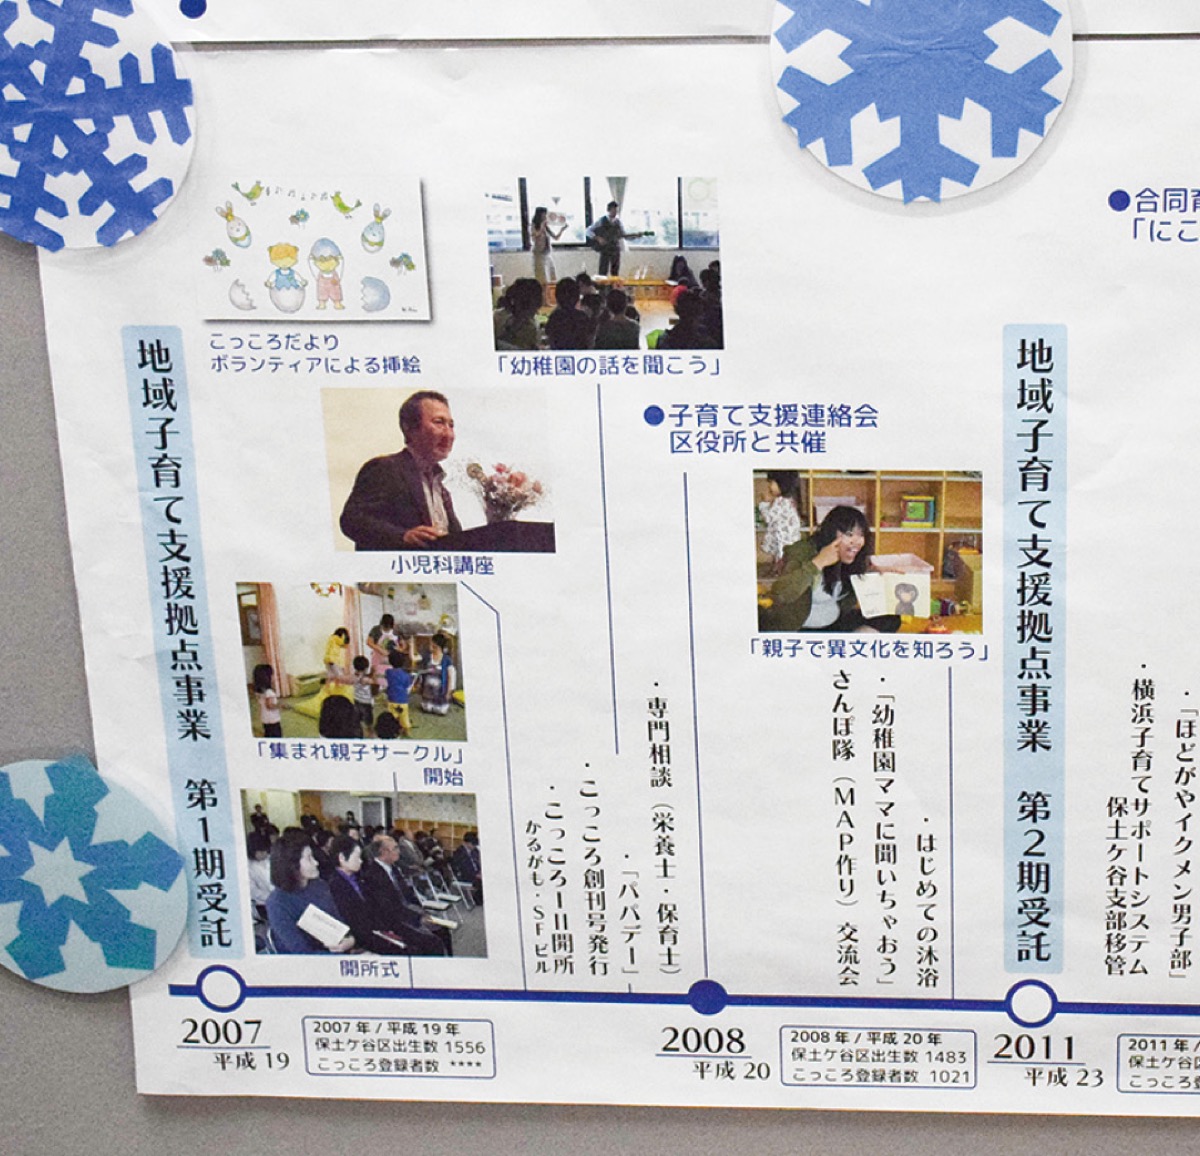 地域子育て支援拠点事業　第1期受託
こっころだより
ボランティアによる挿絵
「幼稚園の話を聞こう」
小児科講座
「集まれ親子サークル」
開始
開所式
・こっころ創刊号発行
・こっころⅠⅡ開所
かるがも・SFビル
・「パパデー」
・専門相談（栄養士・保育士）
●子育て支援連絡会
区役所と共催
「親子で異文化を知ろう」
・はじめての沐浴
・「幼稚園ママに聞いちゃおう」
さんぽ隊（MAP作り）交流会
地域子育て支援拠点事業　第2期受託
●合同育
「にこ
・「ほどがやイクメン男子部」
・横浜子育てサポートシステム
保土ケ谷支部移管
2007
平成 19
2007 年 / 平成 19 年
保土ケ谷区出生数 1556
こっころ登録者数 ****
2008
平成 20
2008 年 / 平成 20 年
保土ケ谷区出生数 1483
こっころ登録者数 1021
2011
平成 23
2011 年 /
保土ケ谷
こっころ登